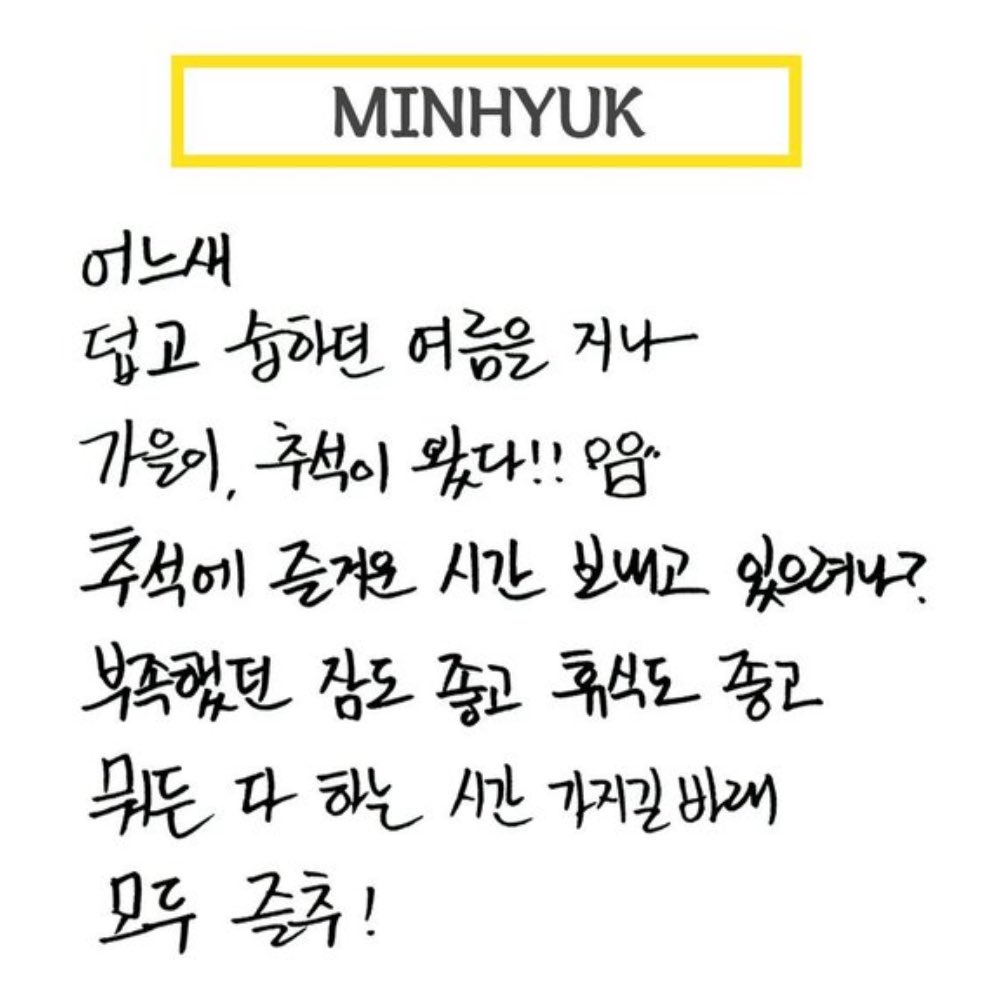 MINHYUK
어느새
덥고 습하던 여름을 지나
가을이, 추석이 왔다!!
추석에 즐거운 시간 보내고 있으려나?
부족했던 잠도 좋고 휴식도 좋고
뭐든 다 하는 시간 가지길 바래
모두 즐추!